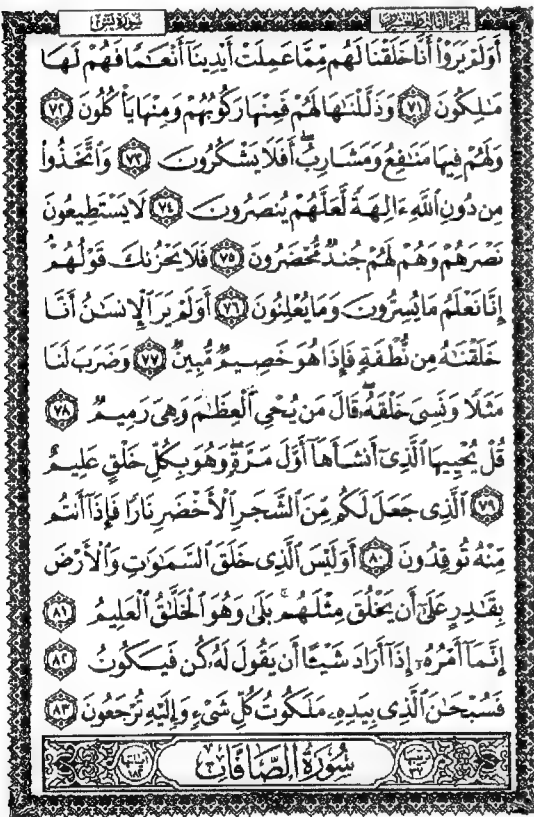 سورة يس
الجزء الثالث والعشرون
أَوَلَمْ يَرَوْا۟ أَنَّا خَلَقْنَا لَهُم مِّمَّا عَمِلَتْ أَيْدِينَآ أَنْعَٰمًا فَهُمْ لَهَا
مَٰلِكُونَ ﴿٧١﴾ وَذَلَّلْنَٰهَا لَهُمْ فَمِنْهَا رَكُوبُهُمْ وَمِنْهَا يَأْكُلُونَ ﴿٧٢﴾
وَلَهُمْ فِيهَا مَنَٰفِعُ وَمَشَارِبُ ۖ أَفَلَا يَشْكُرُونَ ﴿٧٣﴾ وَٱتَّخَذُوا۟
مِن دُونِ ٱللَّهِ ءَالِهَةً لَّعَلَّهُمْ يُنصَرُونَ ﴿٧٤﴾ لَا يَسْتَطِيعُونَ
نَصْرَهُمْ وَهُمْ لَهُمْ جُندٌ مُّحْضَرُونَ ﴿٧٥﴾ فَلَا يَحْزُنكَ قَوْلُهُمْ ۘ
إِنَّا نَعْلَمُ مَا يُسِرُّونَ وَمَا يُعْلِنُونَ ﴿٧٦﴾ أَوَلَمْ يَرَ ٱلْإِنسَٰنُ أَنَّا
خَلَقْنَٰهُ مِن نُّطْفَةٍ فَإِذَا هُوَ خَصِيمٌ مُّبِينٌ ﴿٧٧﴾ وَضَرَبَ لَنَا
مَثَلًا وَنَسِىَ خَلْقَهُۥ ۖ قَالَ مَن يُحْىِ ٱلْعِظَٰمَ وَهِىَ رَمِيمٌ ﴿٧٨﴾
قُلْ يُحْيِيهَا ٱلَّذِىٓ أَنشَأَهَآ أَوَّلَ مَرَّةٍ ۖ وَهُوَ بِكُلِّ خَلْقٍ عَلِيمٌ
﴿٧٩﴾ ٱلَّذِى جَعَلَ لَكُم مِّنَ ٱلشَّجَرِ ٱلْأَخْضَرِ نَارًا فَإِذَآ أَنتُم
مِّنْهُ تُوقِدُونَ ﴿٨٠﴾ أَوَلَيْسَ ٱلَّذِى خَلَقَ ٱلسَّمَٰوَٰتِ وَٱلْأَرْضَ
بِقَٰدِرٍ عَلَىٰٓ أَن يَخْلُقَ مِثْلَهُم ۚ بَلَىٰ وَهُوَ ٱلْخَلَّٰقُ ٱلْعَلِيمُ ﴿٨١﴾
إِنَّمَآ أَمْرُهُۥٓ إِذَآ أَرَادَ شَيْـًٔا أَن يَقُولَ لَهُۥ كُن فَيَكُونُ ﴿٨٢﴾
فَسُبْحَٰنَ ٱلَّذِى بِيَدِهِۦ مَلَكُوتُ كُلِّ شَىْءٍ وَإِلَيْهِ تُرْجَعُونَ ﴿٨٣﴾
ترتيبها ٣٧ سُورَةُ الصَّافَّاتِ آياتها ١٨٢